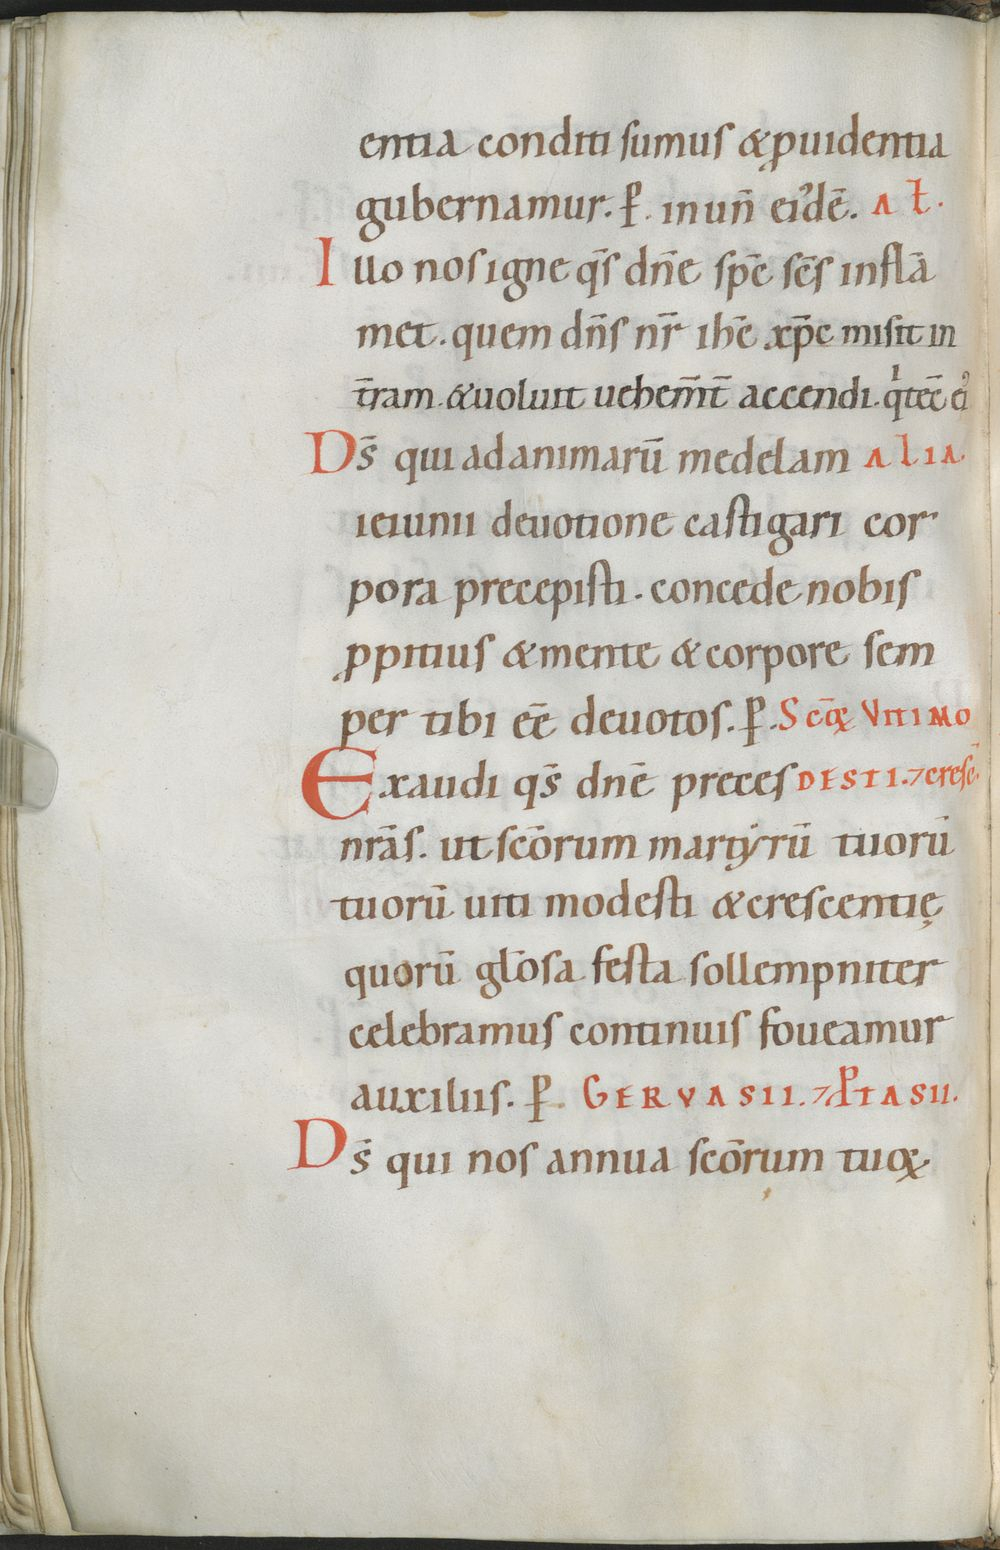 entia conditi sumus & ꝓuidentia
gubernamur. p̄. in un̄ eiꝰdē. A ƚ.
I uo nos igne q̄s dn̄e sp̄c sc̄s inflā
met. quem dn̄s nr̄ ihc̄ xp̄c misit in
t̄ram. & uoluit uehem̄t̄ accendi. qͥ tec̄ eiꝰ
Ds̄ qui ad animarū medelam ALIA.
ieiunii deuotione castigari cor
pora precepisti. concede nobis
ꝓpitius & mente & corpore sem
per tibi ēē deuotos. p̄. Sc̄oꝝ VITI MO
Exaudi q̄s dn̄e preces DESTI. ⁊ cresc̄.
nrās. ut sc̄orum martẏrū tuorū
tuorū uiti modesti & crescentię
quorū gl̄osa festa sollempniter
celebramus continuis foueamur
auxiliis. p̄. GERVASII. ⁊ PTASII.
Ds̄ qui nos annua sc̄orum tuoꝝ